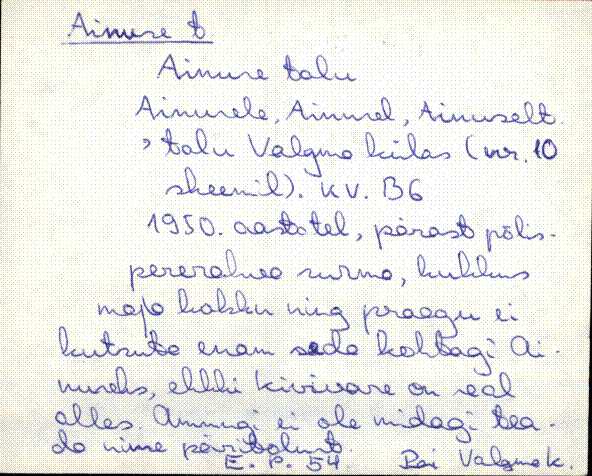 Ainuse t
Ainuse talu
Ainusele, Ainusel, Ainuselt.
, talu Valgma külas (nr. 10
skeemil). KV. B6
1950. aastatel, pärast põlis-
pererahva surma, kukkus
maja kokku ning praegu ei
kutsuta enam seda kohtagi Ai-
nuseks, ehkki kivivare on seal
alles. Ammugi ei ole midagi tea-
da nime päritolust.
E. P. 54. Pai Valgma k.